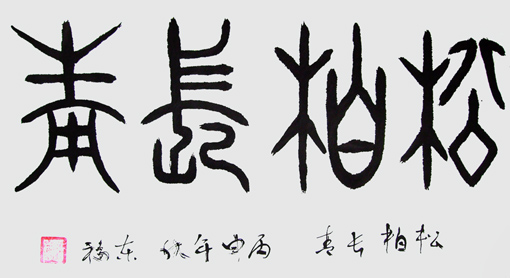 松柏長青
松柏长青 丙申年秋 东